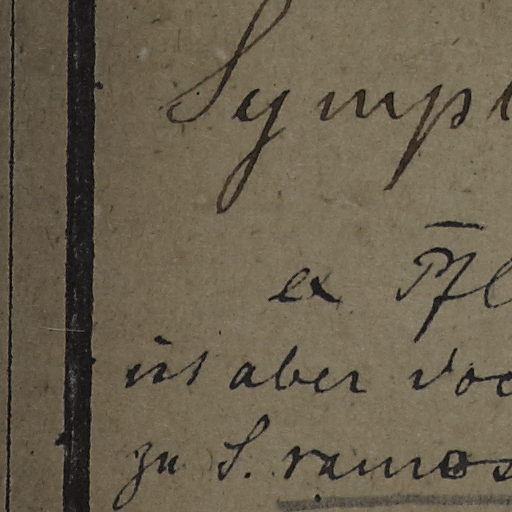 Sympl
ex Pfl
ist aber doc
zu S. ramos